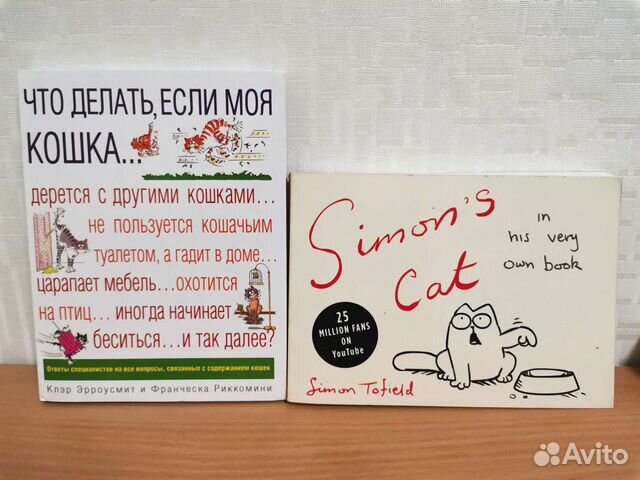 ЧТО ДЕЛАТЬ, ЕСЛИ МОЯ
КОШКА...
дерется с другими кошками...
не пользуется кошачьим
туалетом, а гадит в доме...
царапает мебель...охотится
на птиц... иногда начинает
беситься... и так далее?
Ответы специалистов на все вопросы, связанные с содержанием кошек
Клэр Эрроусмит и Франческа Риккомини
Simon's
Cat
in
his very
own book
25
MILLION FANS
ON
YouTube
Simon Tofield
Avito